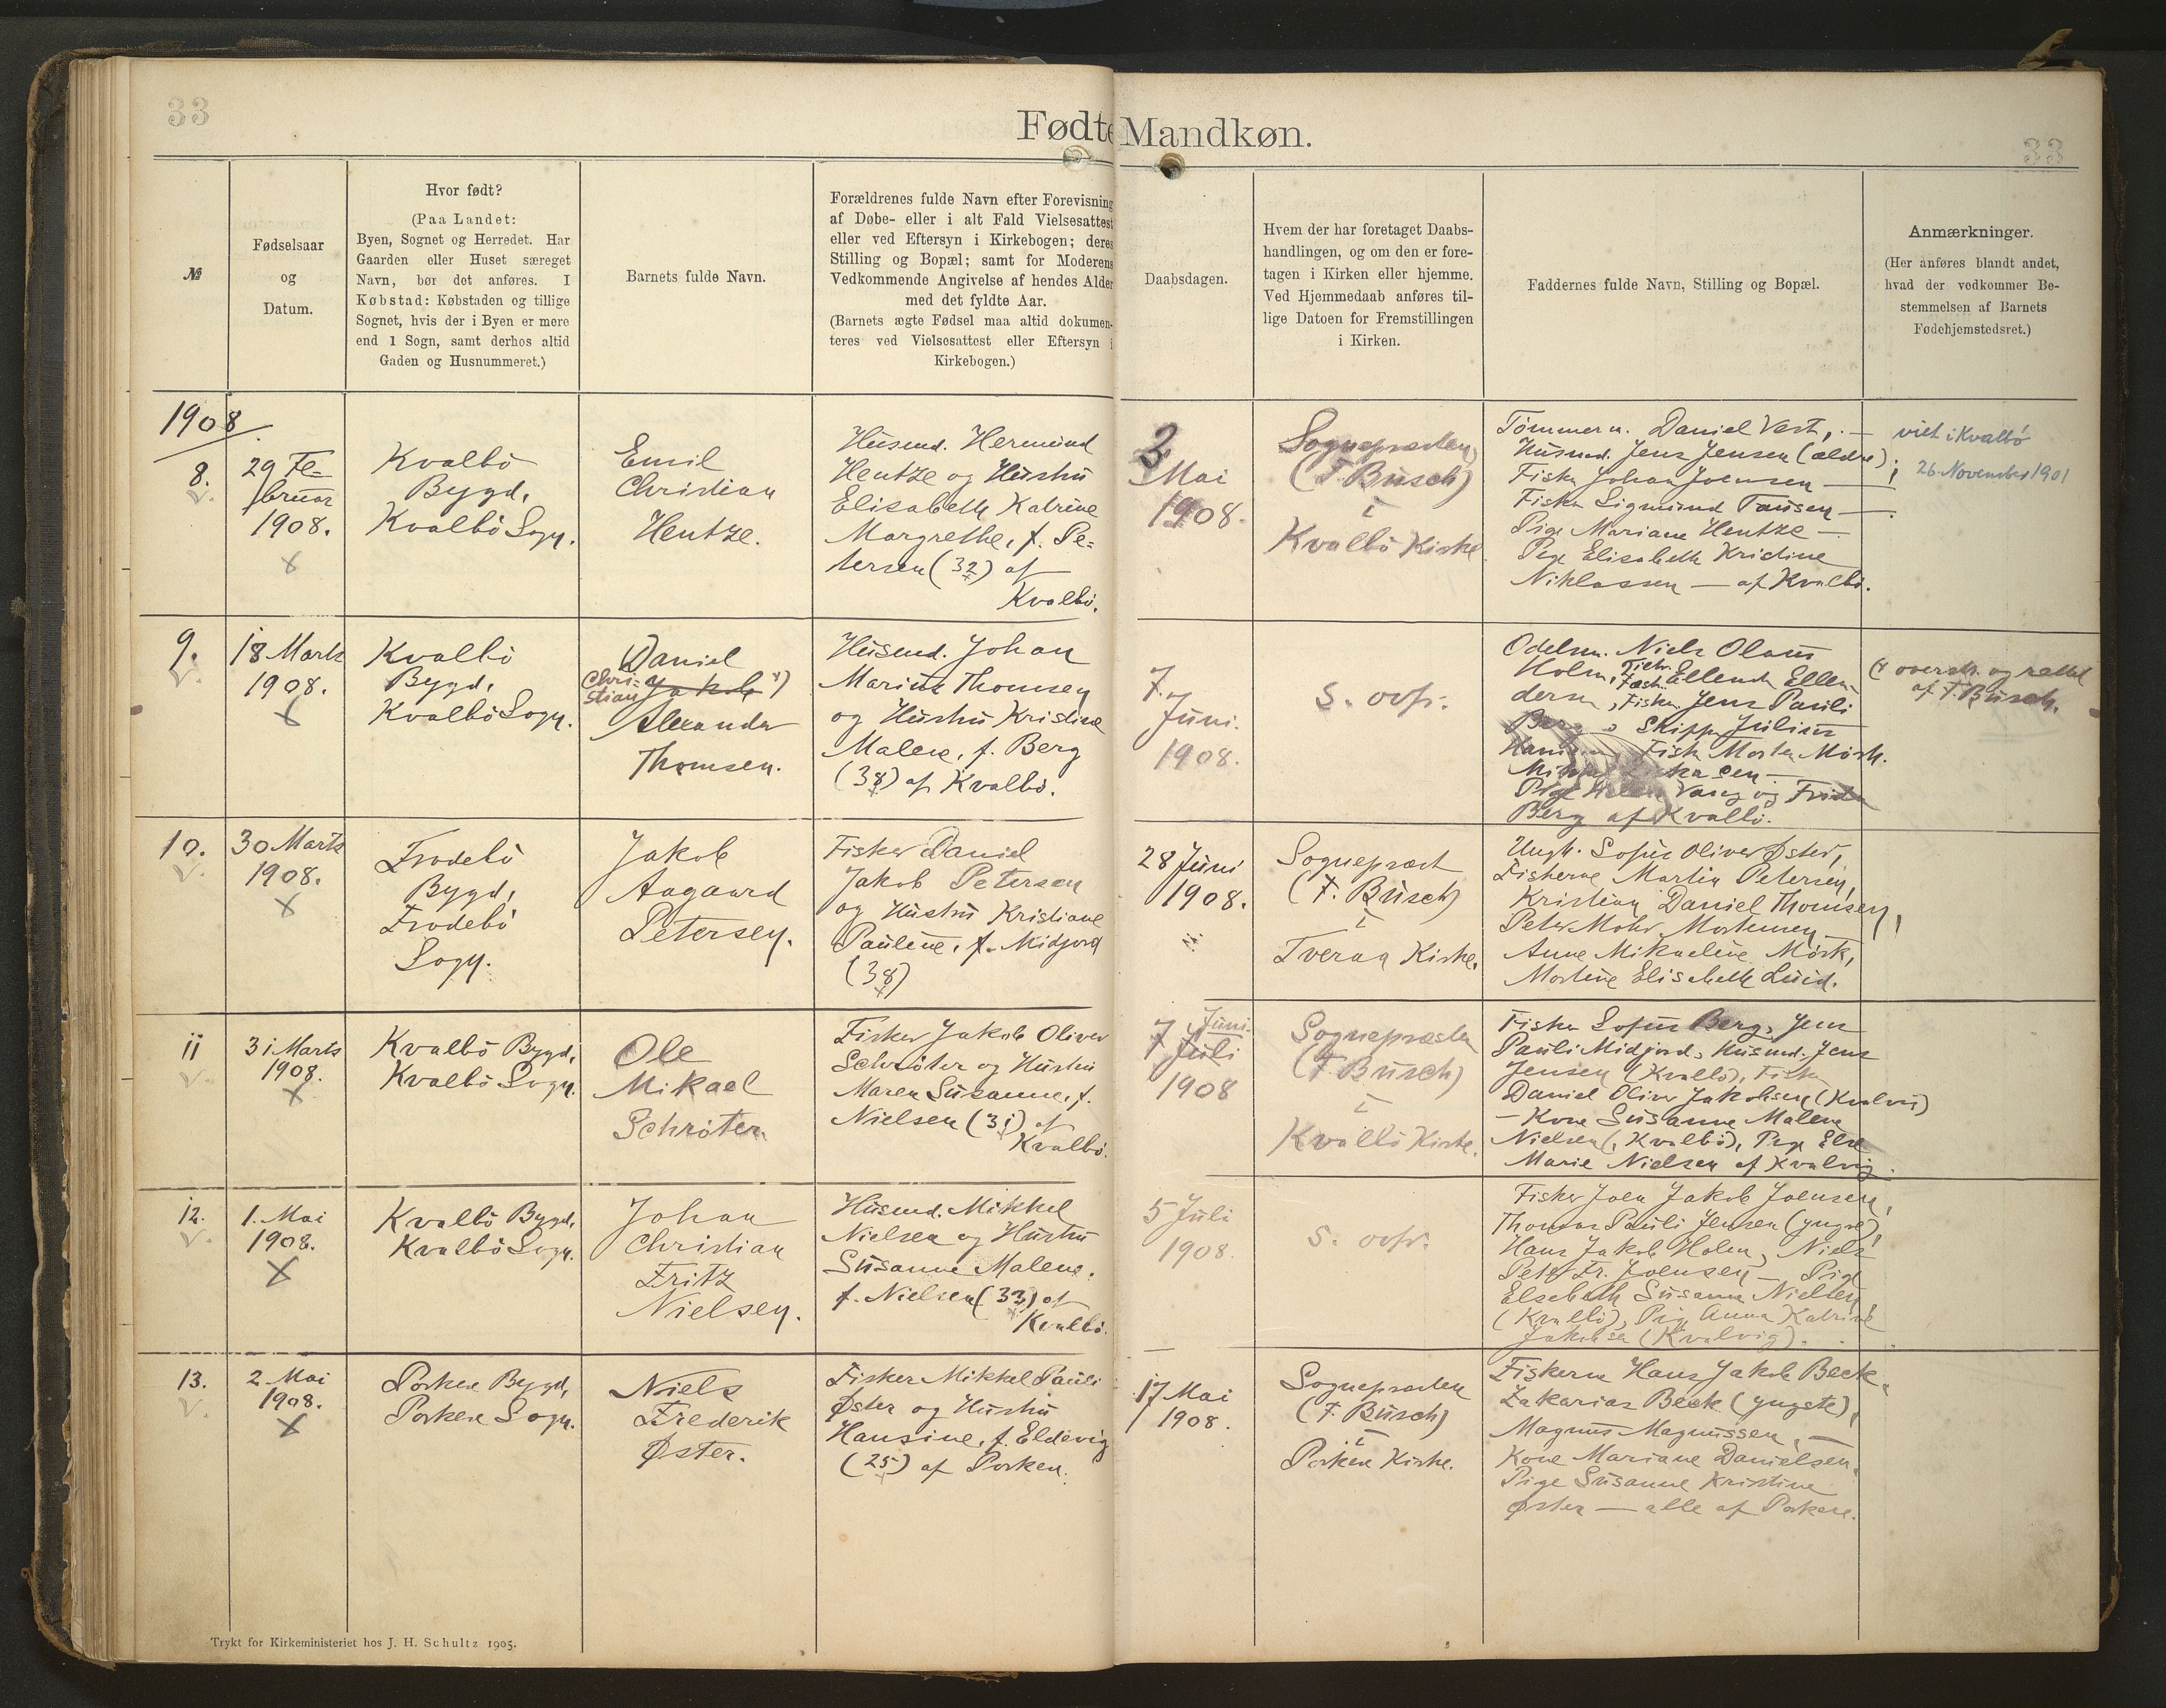 33
Fødte Mandkøn.
33
№
Fødselsaar
og
Datum.
Hvor født?
(Paa Landet:
Byen, Sognet og Herredet. Har
Gaarden eller Huset særeget
Navn, bør det anføres. I
Købstad: Købstaden og tillige
Sognet, hvis der i Byen er mere
end 1 Sogn, samt derhos altid
Gaden og Husnummeret.)
Barnets fulde Navn.
Forældrenes fulde Navn efter Forevisning
af Døbe- eller i alt Fald Vielsesattest
eller ved Eftersyn i Kirkebogen; deres
Stilling og Bopæl; samt for Moderens
Vedkommende Angivelse af hendes Alder
med det fyldte Aar.
(Barnets ægte Fødsel maa altid dokumen-
teres ved Vielsesattest eller Eftersyn i
Kirkebogen.)
Daabsdagen.
Hvem der har foretaget Daabs-
handlingen, og om den er fore-
tagen i Kirken eller hjemme.
Ved Hjemmedaab anføres til-
lige Datoen for Fremstillingen
i Kirken.
Faddernes fulde Navn, Stilling og Bopæl.
Anmærkninger.
(Her anføres blandt andet,
hvad der vedkommer Be-
stemmelsen af Barnets
Fødehjemstedsret.)
1908
8.
29 Fe-
bruar
1908.
Kvalbö
Bygd,
Kvalbö Sogn.
Emil
Christian
Hentze.
Husmd. Hermund
Hentze og Hustru
Elisabeth Katrine
Margrethe, f. Pe-
tersen (32) af
Kvalbö.
3
Mai
1908.
Sognepresten
(F. Busch)
i
Kvalbö Kirke
Tömmerm. Daniel Vest, —
Husmd. Jens Jensen (ældre),
Fisker Johan Joensen —
Fisker Sigmund Tausen —
Pige Mariane Hentze —
Pige Elisabeth Kristine
Niklassen — af Kvalbö.
viet i Kvalbö
26. November 1901
9.
18 Marts
1908.
Kvalbö
Bygd,
Kvalbö Sogn.
Daniel
Chri-
stian Jakob *)
Alexander
Thomsen.
Husmd. Johan
Marius Thomsen
og Hustru Kristine
Malene, f. Berg
(38) af Kvalbö.
7.
Juni.
1908.
s. ovfr.
Odelsm. Niels Olaus
Holm, Ellend Ellen-
dersen, Fisker Jens Pauli
Berg, Skipper Julius
Fisker Morten Mörk.
Pige Vang og Frida
Berg af Kvalbö.
overstr. og rettet
af F. Busch.
10.
30 Marts
1908.
Frodebö
Bygd,
Frodebö
Sogn.
Jakob
Aagaard
Petersen.
Fisker Daniel
Jakob Petersen
og Hustru Kristiane
Pauline, f. Midjord
(38)
28 Juni
1908.
Sogneprest
(F. Busch)
i
Tveraa Kirke.
Ungk. Sofus Oliver Øster,
Fiskerne Martin Petersen,
Kristian Daniel Thomsen,
Peter Mohr Mortensen —
Anne Mikaeline Mörk,
Mortine Elisabeth Luid.
11
31 Marts
1908.
Kvalbö Bygd,
Kvalbö Sogn.
Ole
Mikael
Schröter
Fisker Jakob Oliver
Schröter og Hustru
Maren Susanne, f.
Nielsen (31) af
Kvalbö.
Juni.
7 Juli
1908
Sognepresten
(F. Busch)
i
Kvalbö Kirke.
Fisker Sofus Berg, Jens
Pauli Midjord, Husmd. Jens
Jensen (Kvalbö), Fisker
Daniel Oliver Jakobsen (Kvalvig)
— Kone Susanne Malene
Nielsen (Kvalbö), Pige Else
Marie Nielsen af Kvalvig.
12.
1. Mai
1908.
Kvalbö Bygd,
Kvalbö Sogn.
Johan
Christian
Fritz
Nielsen.
Husmd. Mikkel
Nielsen og Hustru
Susanne Malene,
f. Nielsen (33) af
Kvalbö.
5 Juli
1908.
s. ovfr.
Fisker Joen Jakob Joensen,
Thomas Pauli Jensen (yngre),
Hans Jakob Holm, Niels
Peter Fr. Joensen — Pige
Elsebeth Susanne Nielsen
(Kvalbö), Pige Anna Katrine
Jakobsen (Kvalvig).
13.
2. Mai
1908.
Porkere Bygd,
Porkere Sogn.
Niels
Frederik
Øster.
Fisker Mikkel Pauli
Øster og Hustru
Hansine, f. Eldevig
(25) af Porkere.
17 Mai
1908.
Sognepresten
(F. Busch)
i
Porkere Kirke.
Fiskerne Hans Jakob Beck,
Zakarias Beck (yngste),
Magnus Magnussen, —
Kone Mariane Danielsen,
Pige Susanne Kristine
Øster — alle af Porkere.
Trykt for Kirkeministeriet hos J. H. Schultz 1905.